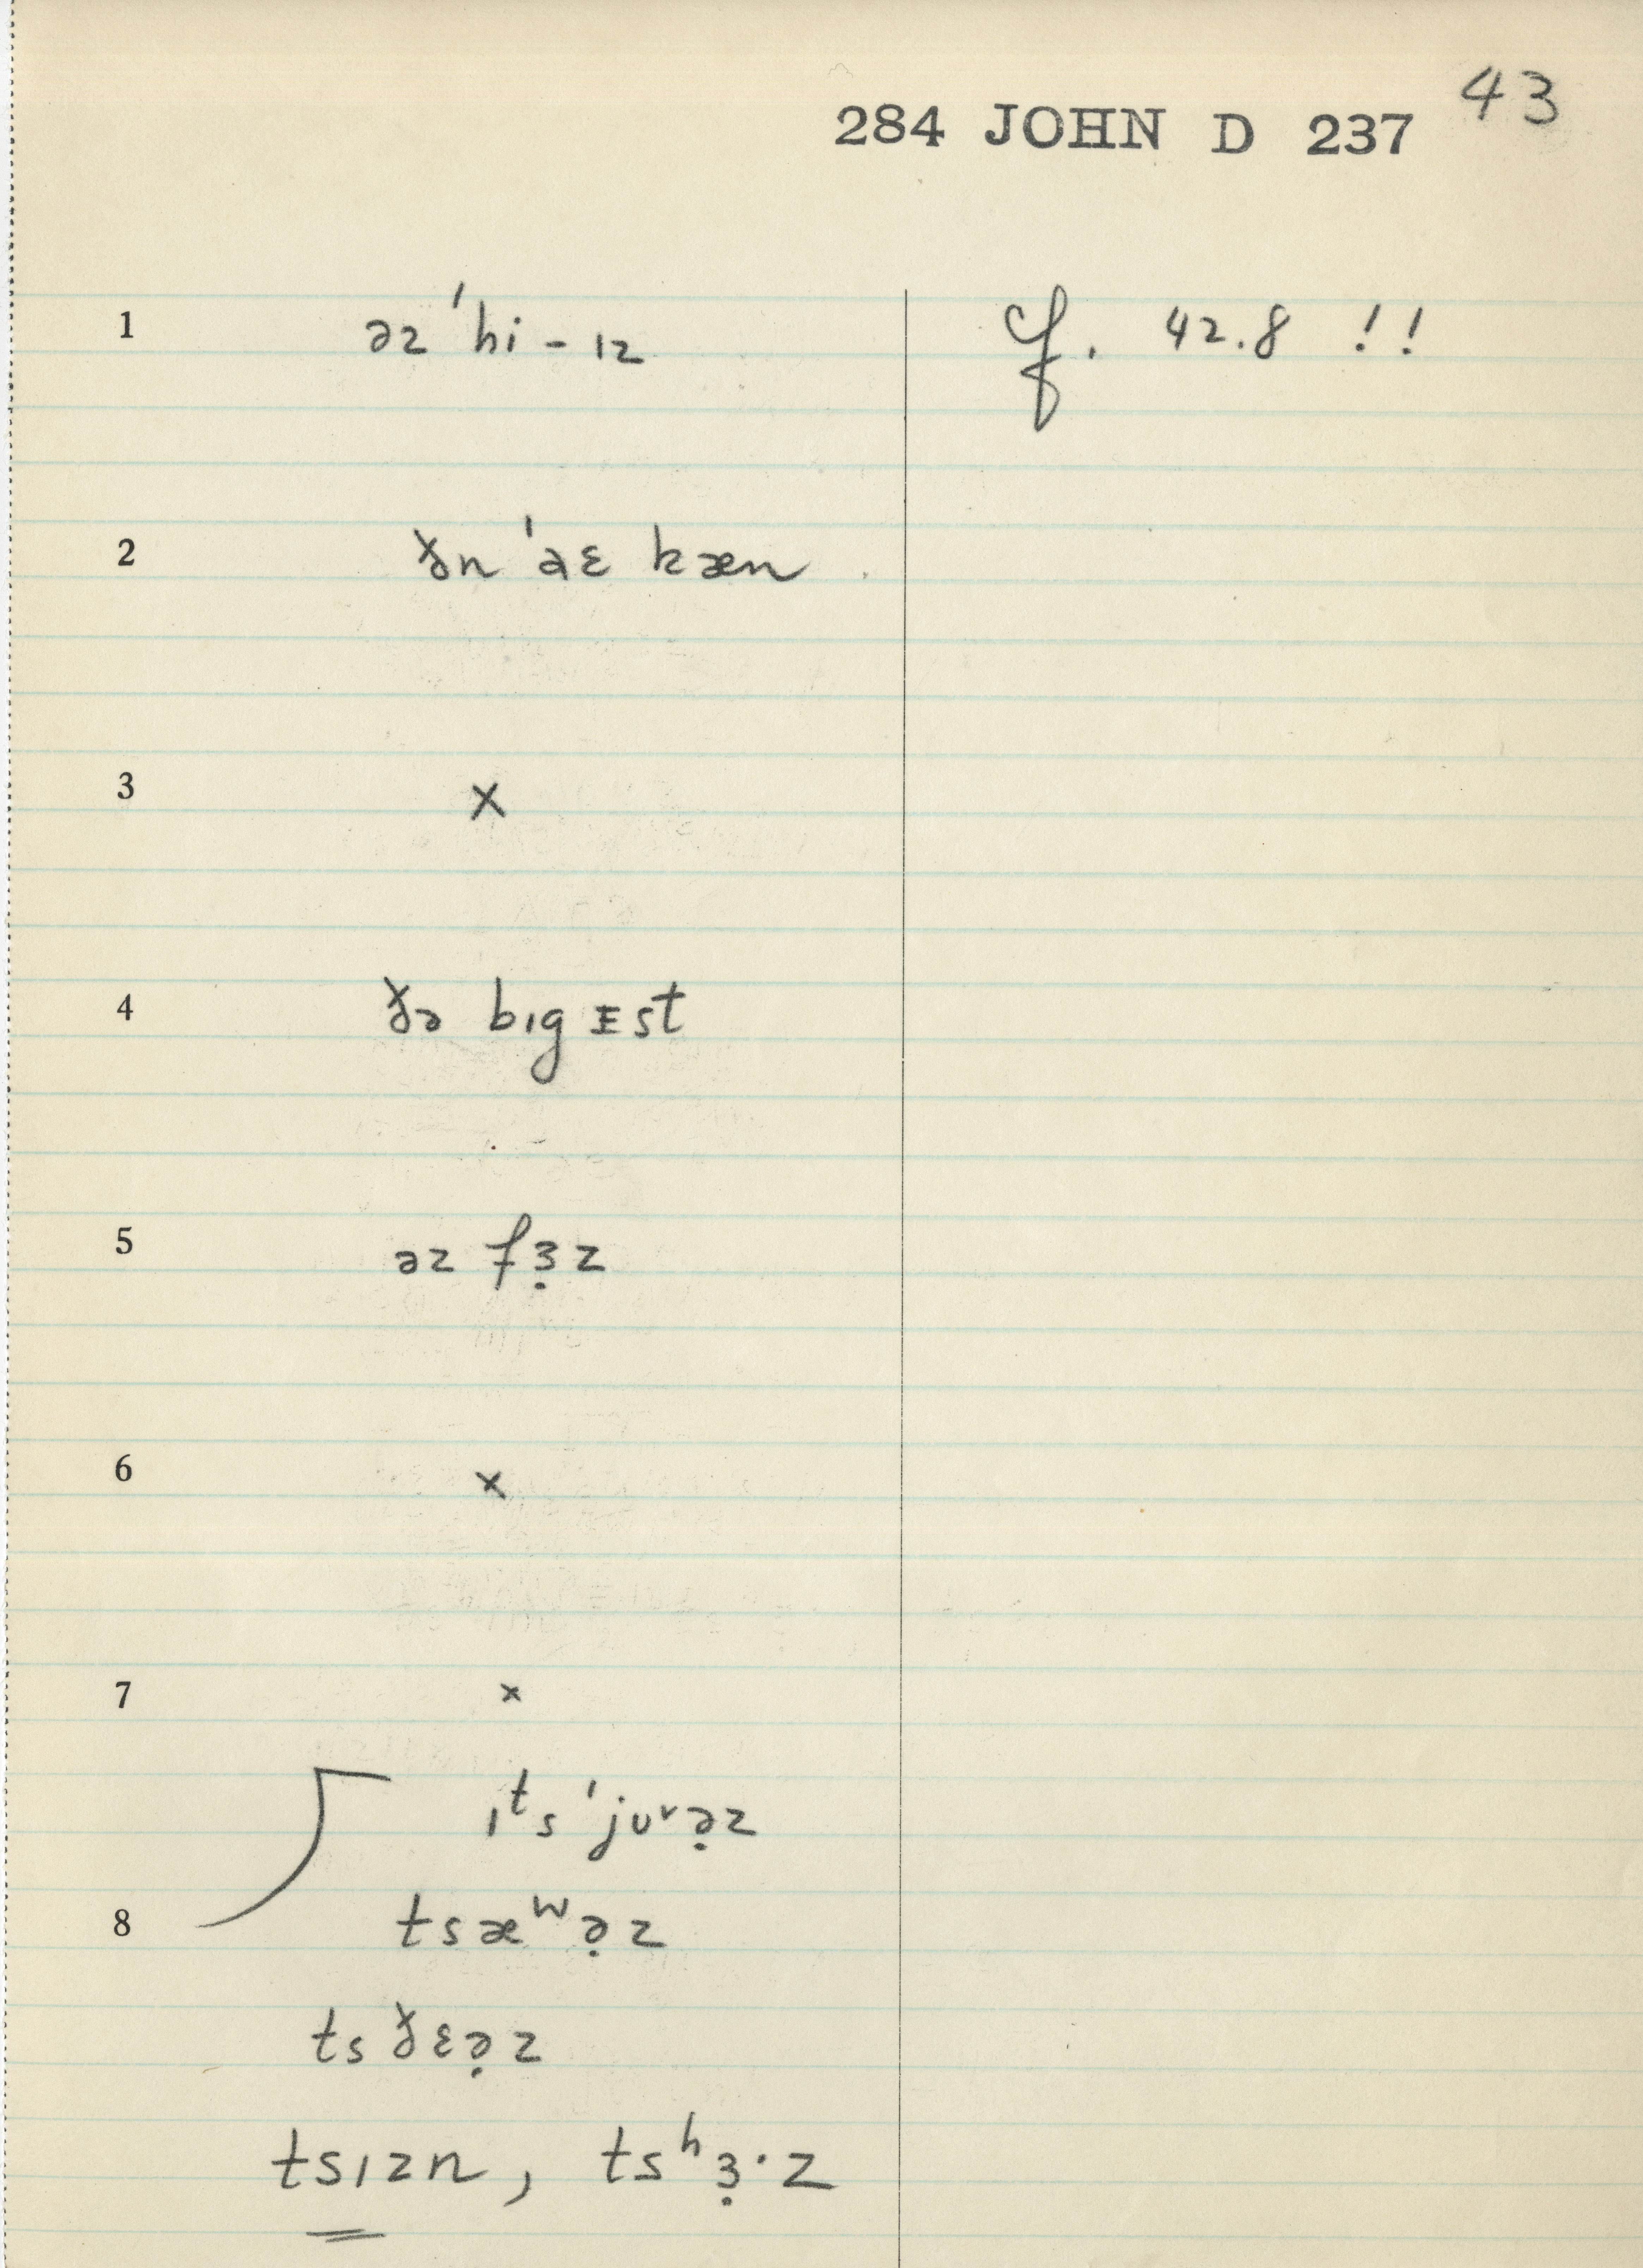 43
284 JOHN D 237
1 əz ˈhi - ɪz cf. 42.8 !!
2 ðn ˈəɛ kæn
3 x
4 ðə bɪg ɪst
5 əz fɜ̣z
6 x
7 x
ɪᵗs ˈjʊᵛə̣z
8 tsæʷə̣z
tsðɛə̣z
tsɪzn, tsʰɜ̣·z